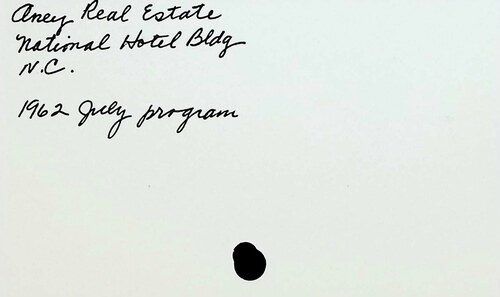 Aney Real Estate
National Hotel Bldg
N.C.
1962 July program